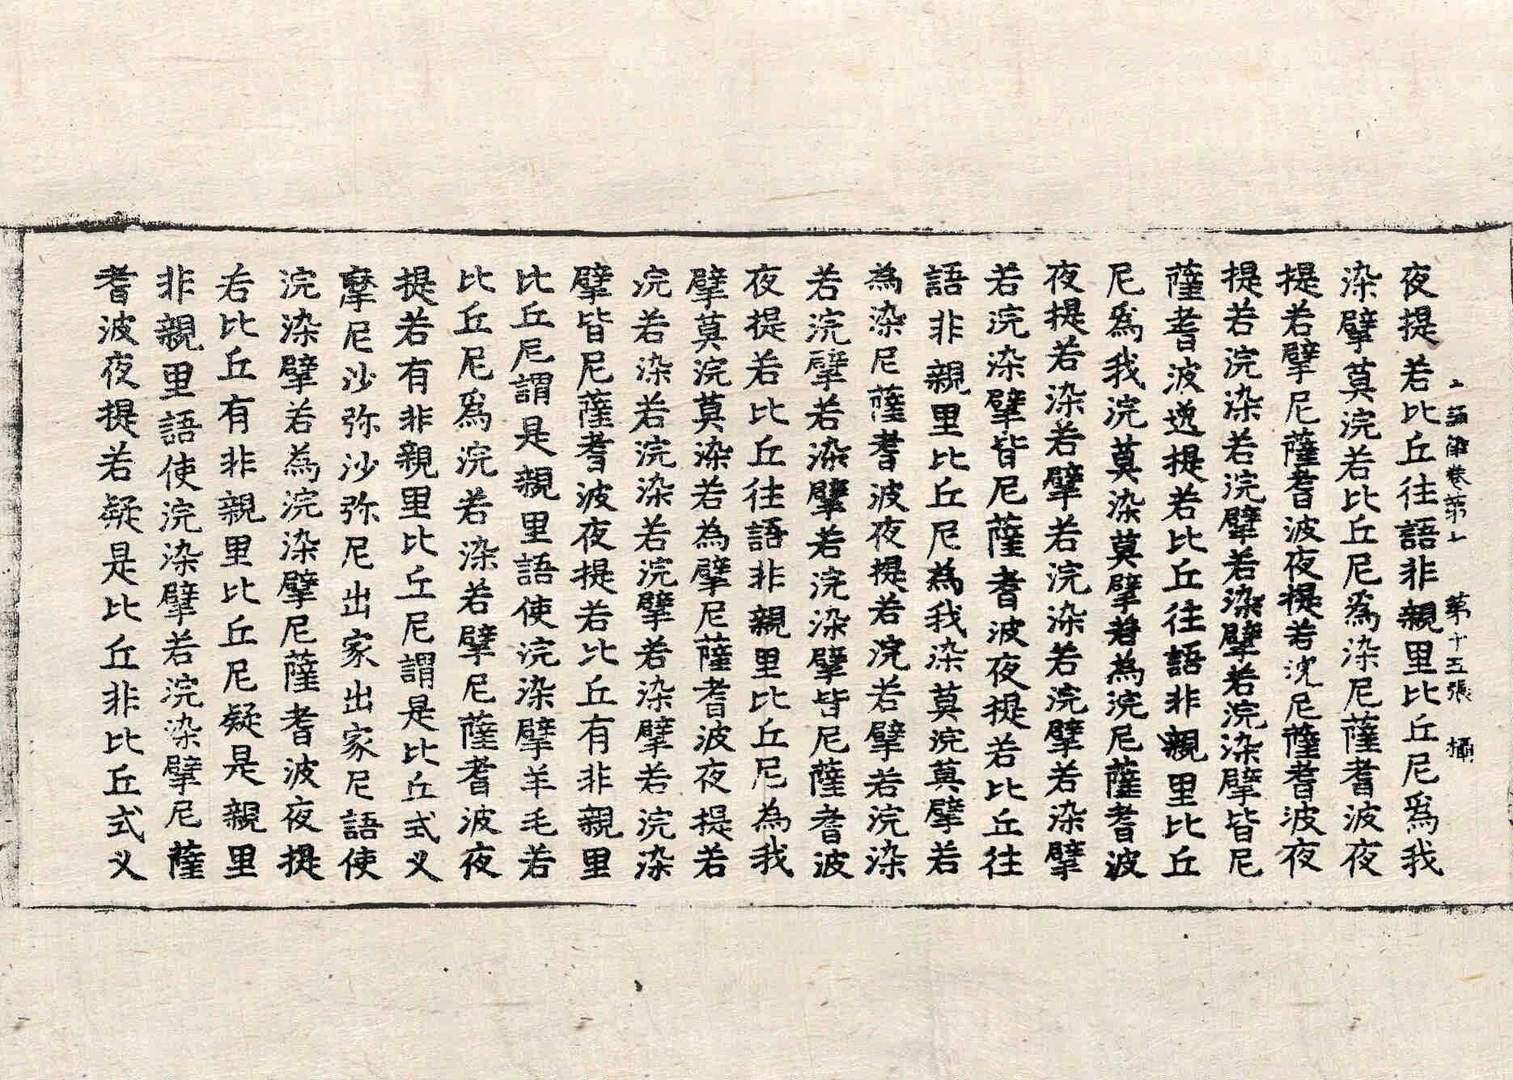 誦律卷第七 第十五張 攝
夜提若比丘往語非親里比丘尼爲我
染擘莫浣若比丘尼爲染尼薩耆波夜
提若擘尼薩耆波夜提若沈尼薩耆波夜
提若浣染若浣擘若染擘若浣染擘皆尼
薩耆波逸提若比丘往語非親里比丘
尼爲我浣莫染莫擘若為浣尼薩耆波
夜提若染若擘若浣染若浣擘若染擘
若浣染擘皆尼薩耆波夜提若比丘往
語非親里比丘尼為我染莫浣莫擘若
為染尼薩耆波夜提若浣若擘若浣染
若浣擘若染擘若浣染擘皆尼薩耆波
夜提若比丘往語非親里比丘尼為我
擘莫浣莫染若為擘尼薩耆波夜提若
浣若染若浣染若浣擘若染擘若浣染
擘皆尼薩耆波夜提若比丘有非親里
比丘尼謂是親里語使浣染擘羊毛若
比丘尼爲浣若染若擘尼薩耆波夜
提若有非親里比丘尼謂是比丘式叉
摩尼沙弥沙弥尼出家出家尼語使
浣染擘若為浣染擘尼薩耆波夜提
若比丘有非親里比丘尼疑是親里
非親里語使浣染擘若浣染擘尼薩
耆波夜提若疑是比丘非比丘式叉